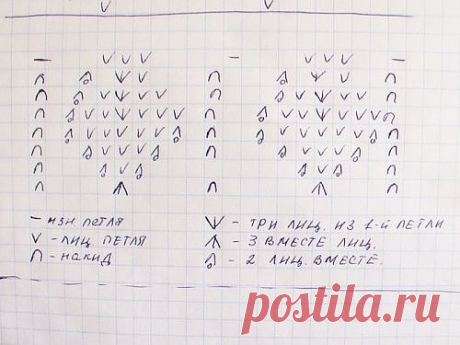 — изн петля
V – лиц. петля
∩ – накид
три лиц. из 1-й петли
3 вместе лиц.
2 лиц. вместе.
postila.ru